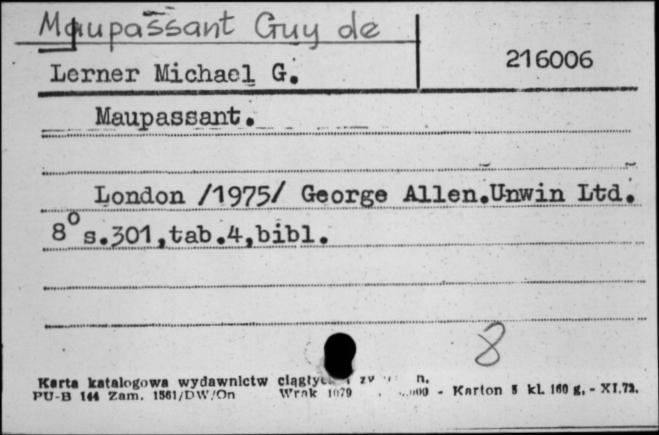 Maupassant Guy de
Lerner Michael G.
216006
Maupassant.
London /1975/ George Allen.Unwin Ltd.
8° s.301,tab.4,bibl.
8
Karta katalogowa wydawnictw
PU-B 144 Zam. 1561/DW/On - Karton 5 kl. 160 g. - XI.72.